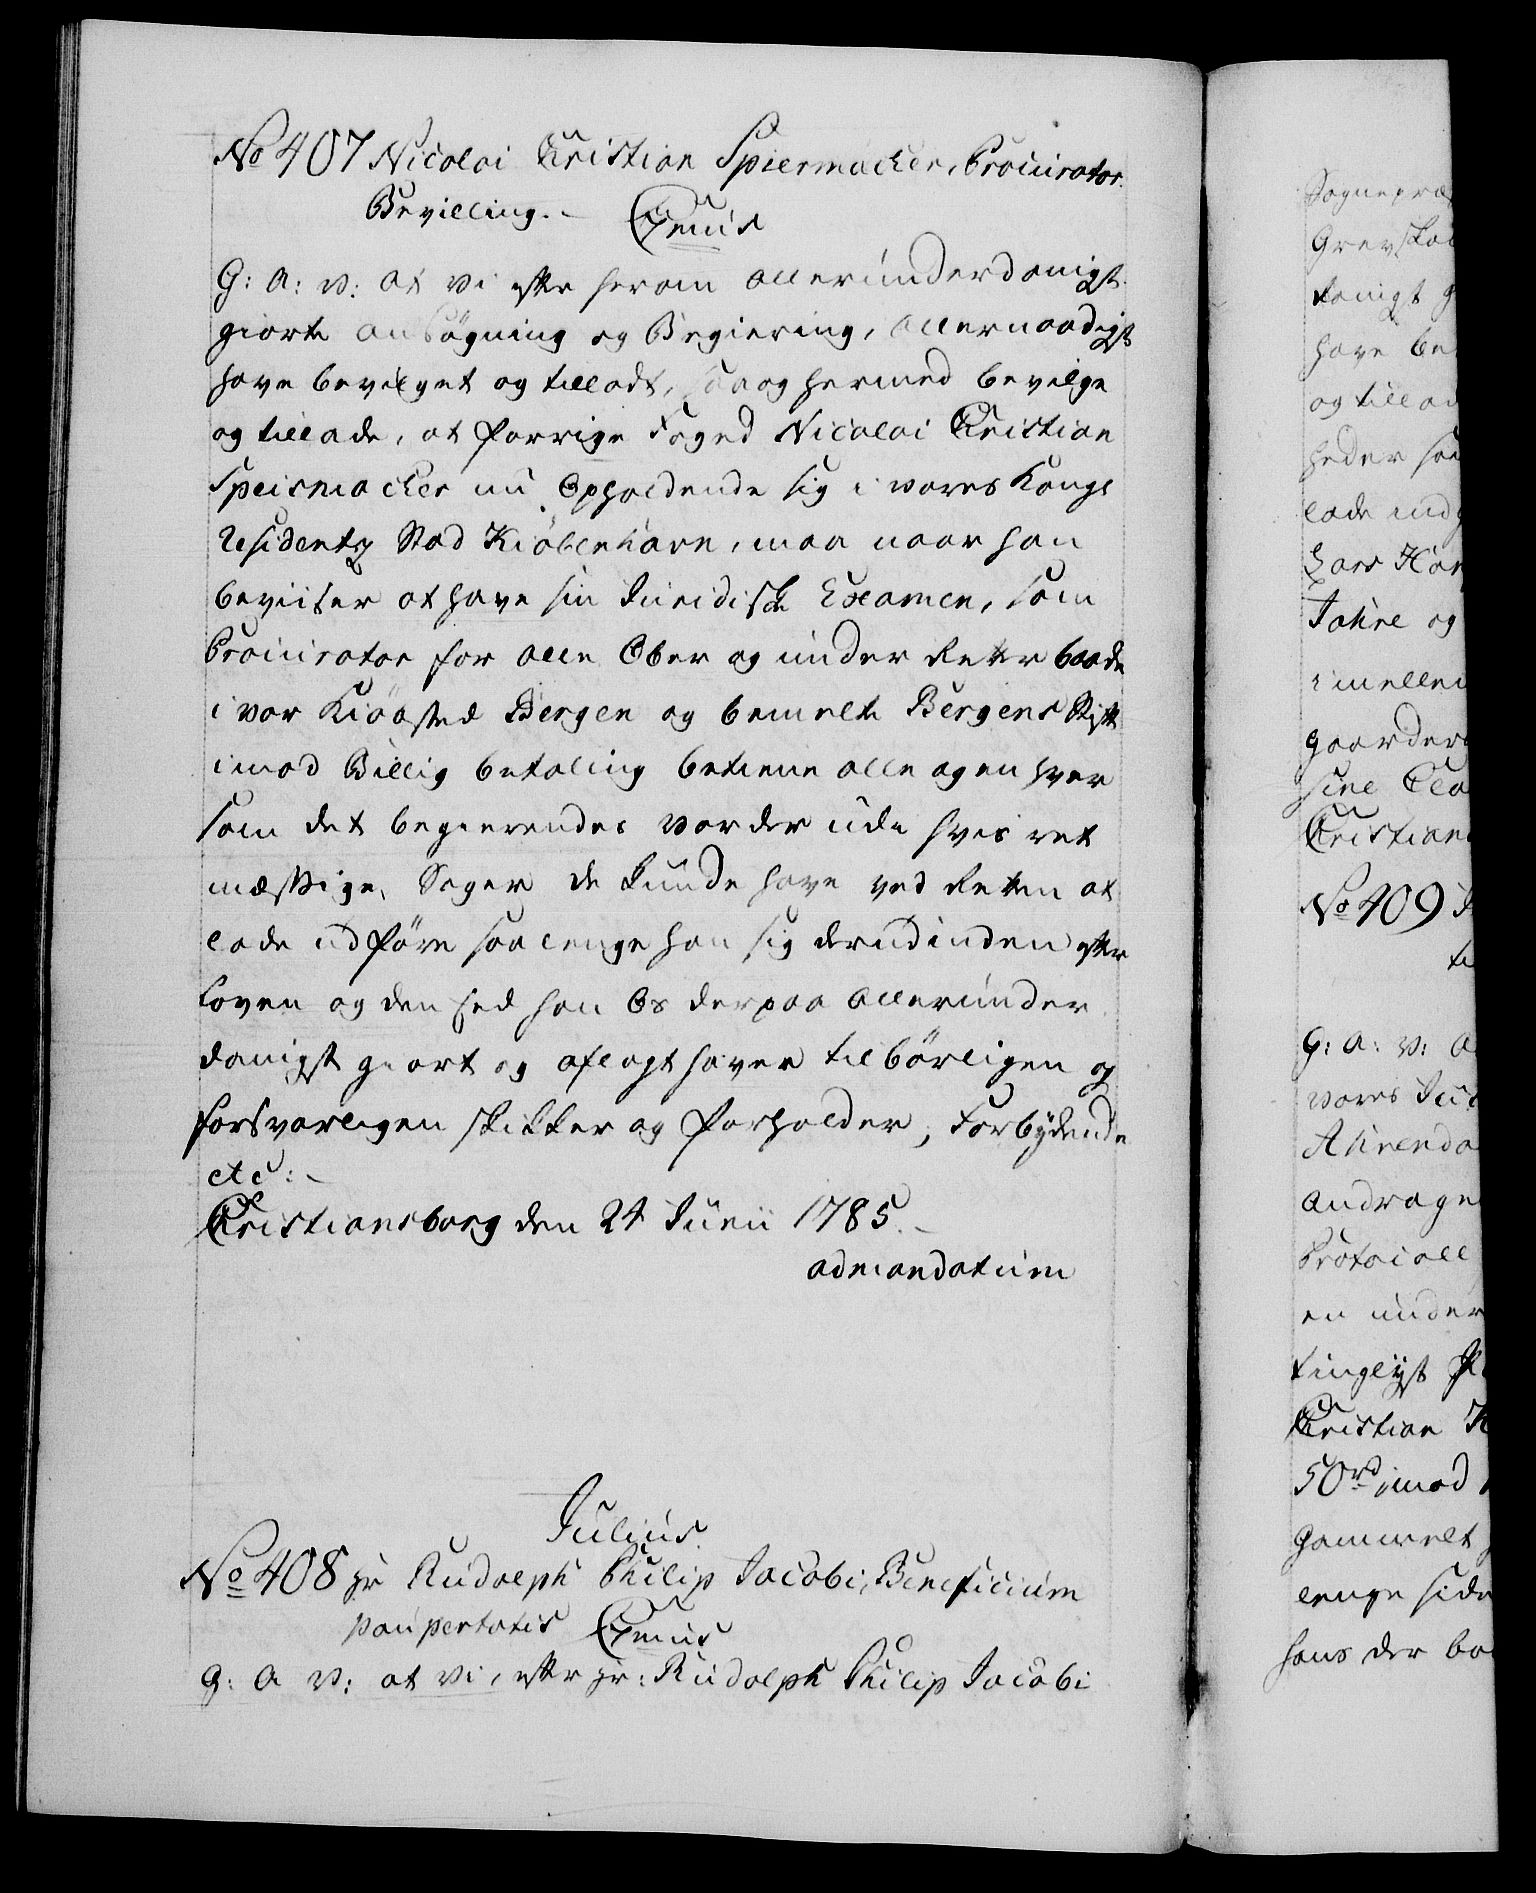 No 407 Nicolai Christian Spiermacher, Procurator
Bevilling. – C7mus
G: A: V: At Vi efter herom allerunderdanigst
giorte ansøgning og Begiering, allernaadigst
have bevilget og tilladt, saa og hermed bevilge
og tillade, at forrige Foged Nicolai Christian
Speismacher nu Opholdende sig i vores Kongl
Residentz Stad Kiöbenhavn, maa naar han
beviiser at have sin Juridiske Examen, som
Procurator for alle Ober og under Retter baade
i vor Kiöbsted Bergen og bemelte Bergens Stift
imod Billig betaling betiene alle og en hver
som det begierendes vorder udi hvis ret
mæssige Sager de kunde have ved Retten at
lade udføre saalenge han sig derudinden efter
Loven og den Eed han Os derpaa Allerunder
danigst giort og aflagt haver tilbørligen og
forsvarligen skikker og forholder; Forbydende
etc: –
Christiansborg den 24 Junii 1785. –
admandatum
Julius.
No 408 hr Rudolph Philip Jacobi, Beneficium
paupertatis C7mus
G: A V: at Vi, efter hr: Rudolph Philip Jacobi
Sognepræ
Grevska
danigt g
have be
og tillad
heder sa
lade ind
Lars Han
Tahre og
imellem
gaarder
sine
Christian
No 409
G: A: V: A
vores Jus
Ahrenda
Andrage
Protocoll
en under
tinglyst
Christian H
50 rd, imod
gammelt
lenge side
hans der bo